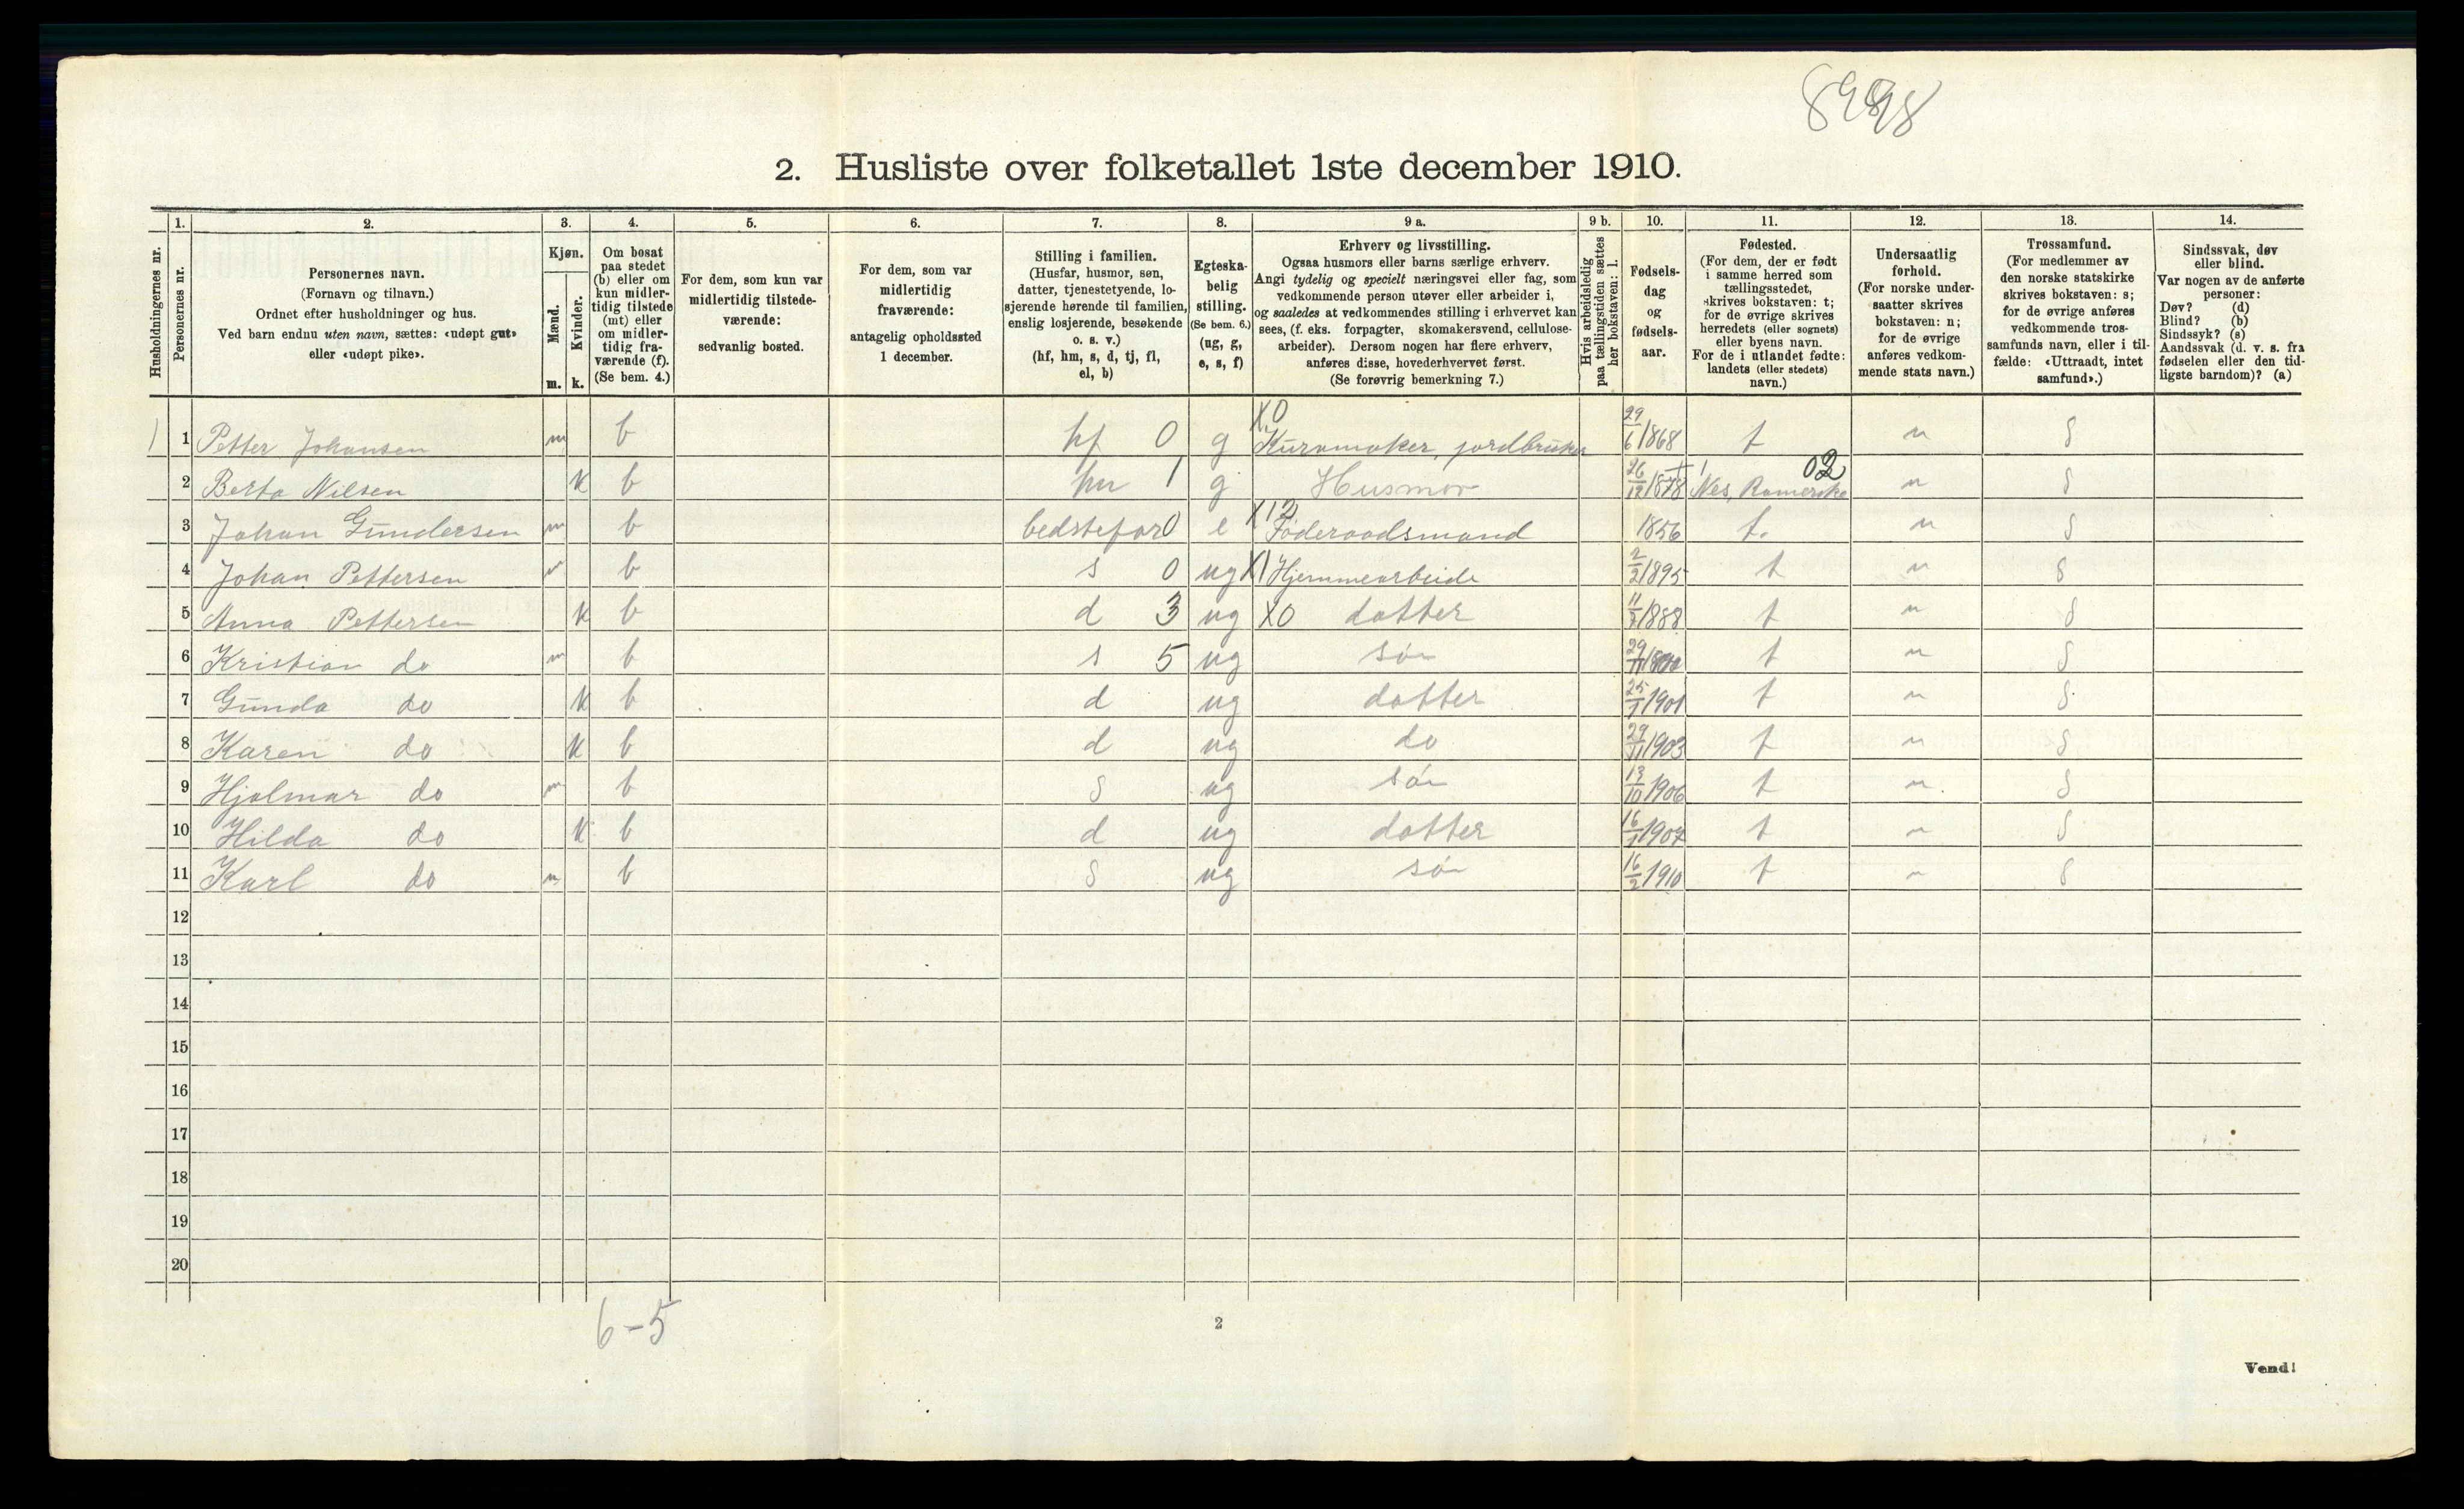 2. Husliste over folketallet 1ste december 1910.
Husholdningernes nr.
1.
Personernes nr.
2.
Personernes navn.
(Fornavn og tilnavn.)
Ordnet efter husholdninger og hus.
Ved barn endnu uten navn, sættes: «udøpt gut»
eller «udøpt pike».
3.
Kjøn.
Mænd.
m.
Kvinder.
k.
4.
Om bosat
paa stedet
(b) eller om
kun midler-
tidig tilstede
(mt) eller
om midler-
tidig fra-
værende (f).
(Se bem. 4.)
5.
For dem, som kun var
midlertidig tilstede-
værende:
sedvanlig bosted.
6.
For dem, som var
midlertidig
fraværende:
antagelig opholdssted
1 december.
7.
Stilling i familien.
(Husfar, husmor, søn,
datter, tjenestetyende, lo-
sjerende hørende til familien,
enslig losjerende, besøkende
o. s. v.)
(hf, hm, s, d, tj, fl,
el, b)
8.
Egteska-
belig
stilling.
(Se bem. 6.)
(ug, g,
e, s, f)
9 a.
Erhverv og livsstilling.
Ogsaa husmors eller barns særlige erhverv.
Angi tydelig og specielt næringsvei eller fag, som
vedkommende person utøver eller arbeider i,
og saaledes at vedkommendes stilling i erhvervet kan
sees, (f. eks. forpagter, skomakersvend, cellulose-
arbeider). Dersom nogen har flere erhverv,
anføres disse, hovederhvervet først.
(Se forøvrig bemerkning 7.)
9 b.
Hvis arbeidsledig
paa tællingstiden sættes
her bokstaven: l.
10.
Fødsels-
dag
og
fødsels-
aar.
11.
Fødested.
(For dem, der er født
i samme herred som
tællingsstedet,
skrives bokstaven: t;
for de øvrige skrives
herredets (eller sognets)
eller byens navn.
For de i utlandet fødte:
landets (eller stedets)
navn.)
12.
Undersaatlig
forhold.
(For norske under-
saatter skrives
bokstaven: n;
for de øvrige
anføres vedkom-
mende stats navn.)
13.
Trossamfund.
(For medlemmer av
den norske statskirke
skrives bokstaven: s;
for de øvrige anføres
vedkommende tros-
samfunds navn, eller i til-
fælde: «Uttraadt, intet
samfund».)
14.
Sindssvak, døv
eller blind.
Var nogen av de anførte
personer:
Døv? (d)
Blind? (b)
Sindssyk? (s)
Aandssvak (d. v. s. fra
fødselen eller den tid-
ligste barndom)? (a)
1) 1 Petter Johansen m b hf 0 g X0 Kurvmaker, jordbruker 29/6 1868 t n s
2 Berta Nilsen k b hm 1 g Husmor 26/12 1878 Nes, Romerike 02 n s
3 Johan Gundersen m b bedstefar 0 e X12 Føderaadsmand 1856 t. n s
4 Johan Pettersen m b s 0 ug X1 Hjemmearbeide 2/2 1895 t n s
5 Anna Pettersen k b d 3 ug X0 datter 1888 t n s
6 Kristian do m b s 5 ug søn 29/11 t n s
7 Gunda do k b d ug datter 25/1 1901 t n s
8 Karen do k b d ug do 29/11 1903 t n s
9 Hjalmar do m b s ug søn 13/10 1906 t n s
10 Hilda do k b d ug datter 16/1 1907 t n s
11 Karl do m b s ug søn 16/2 1910 t n s
12
13
14
15
16
17
18
19
20
6-5
2
Vend!